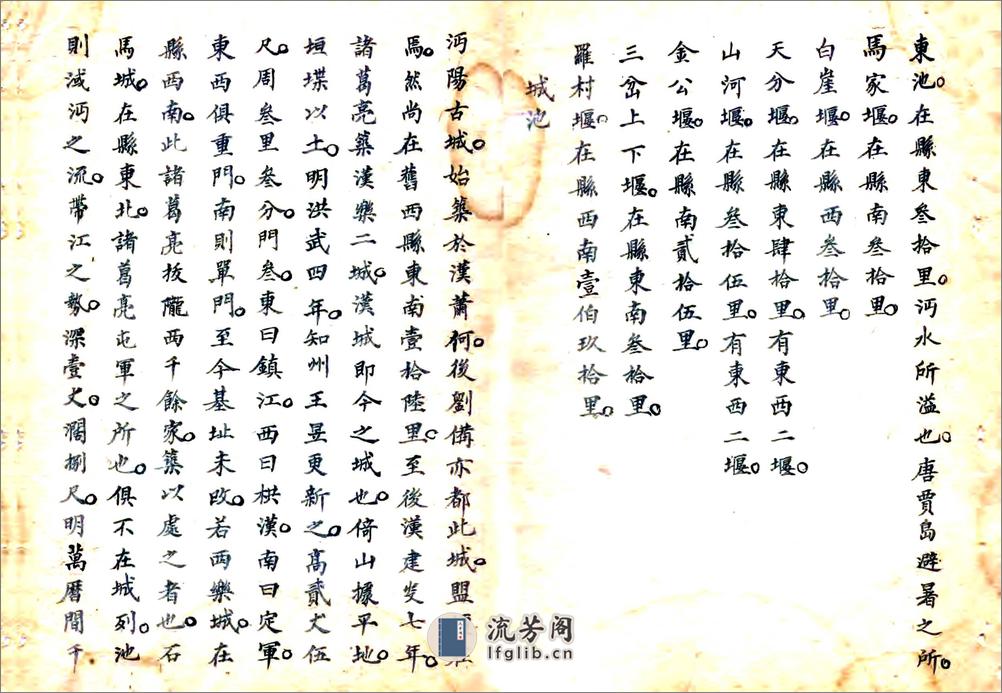 東池。在縣東叁拾里。沔水所溢也。唐賈島避暑之所。
馬家堰。在縣南叁拾里。
白崖堰。在縣西叁拾里。
天分堰。在縣東肆拾里。有東西二堰。
山河堰。在縣叁拾伍里。有東西二堰。
金公堰。在縣南貳拾伍里。
三岔上下堰。在縣東南叁拾里。
羅村堰。在縣西南壹伯玖拾里。
城池
沔陽古城。始築於漢蕭何。後劉備亦都此城。盟
焉。然尚在舊西縣東南壹拾陸里。至後漢建安七年。
諸葛亮築漢樂二城。漢城即今之城也。倚山據平地。
垣堞以土。明洪武四年。知州王昱更新之。高貳丈伍
尺。周叁里叁分。門叁。東曰鎮江。西曰拱漢。南曰定軍。
東西俱重門。南則單門。至今基址未改。若西樂城。在
縣西南。此諸葛亮拔隴西千餘家。築以處之者也。石
馬城。在縣東北。諸葛亮屯軍之所也。俱不在城列。池
則減沔之流。帶江之勢。深壹丈。濶捌尺。明萬曆間千
流芳阁
lfglib.cn